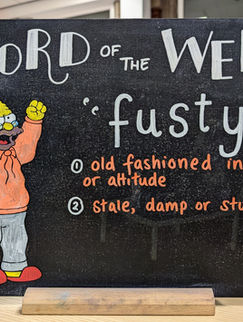 ORD OF THE WE
fusty
① old fashioned in
or attitude
② stale, damp or stu